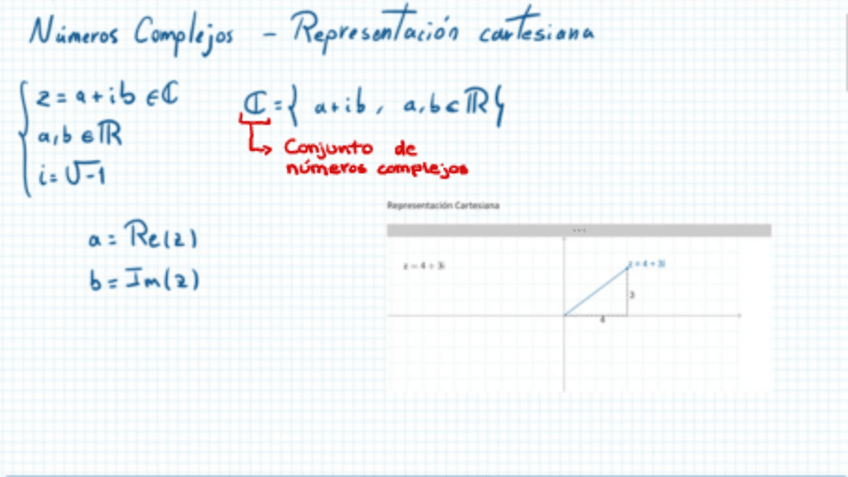 Números Complejos - Representación cartesiana
z = a + ib ∈ ℂ
a, b ∈ ℝ
i = √-1
ℂ = { a+ib, a,b ∈ ℝ }
Conjunto de
números complejos
a = Re(z)
b = Im(z)
Representación Cartesiana
z = 4 + 3i
z = 4 + 3i
3
4